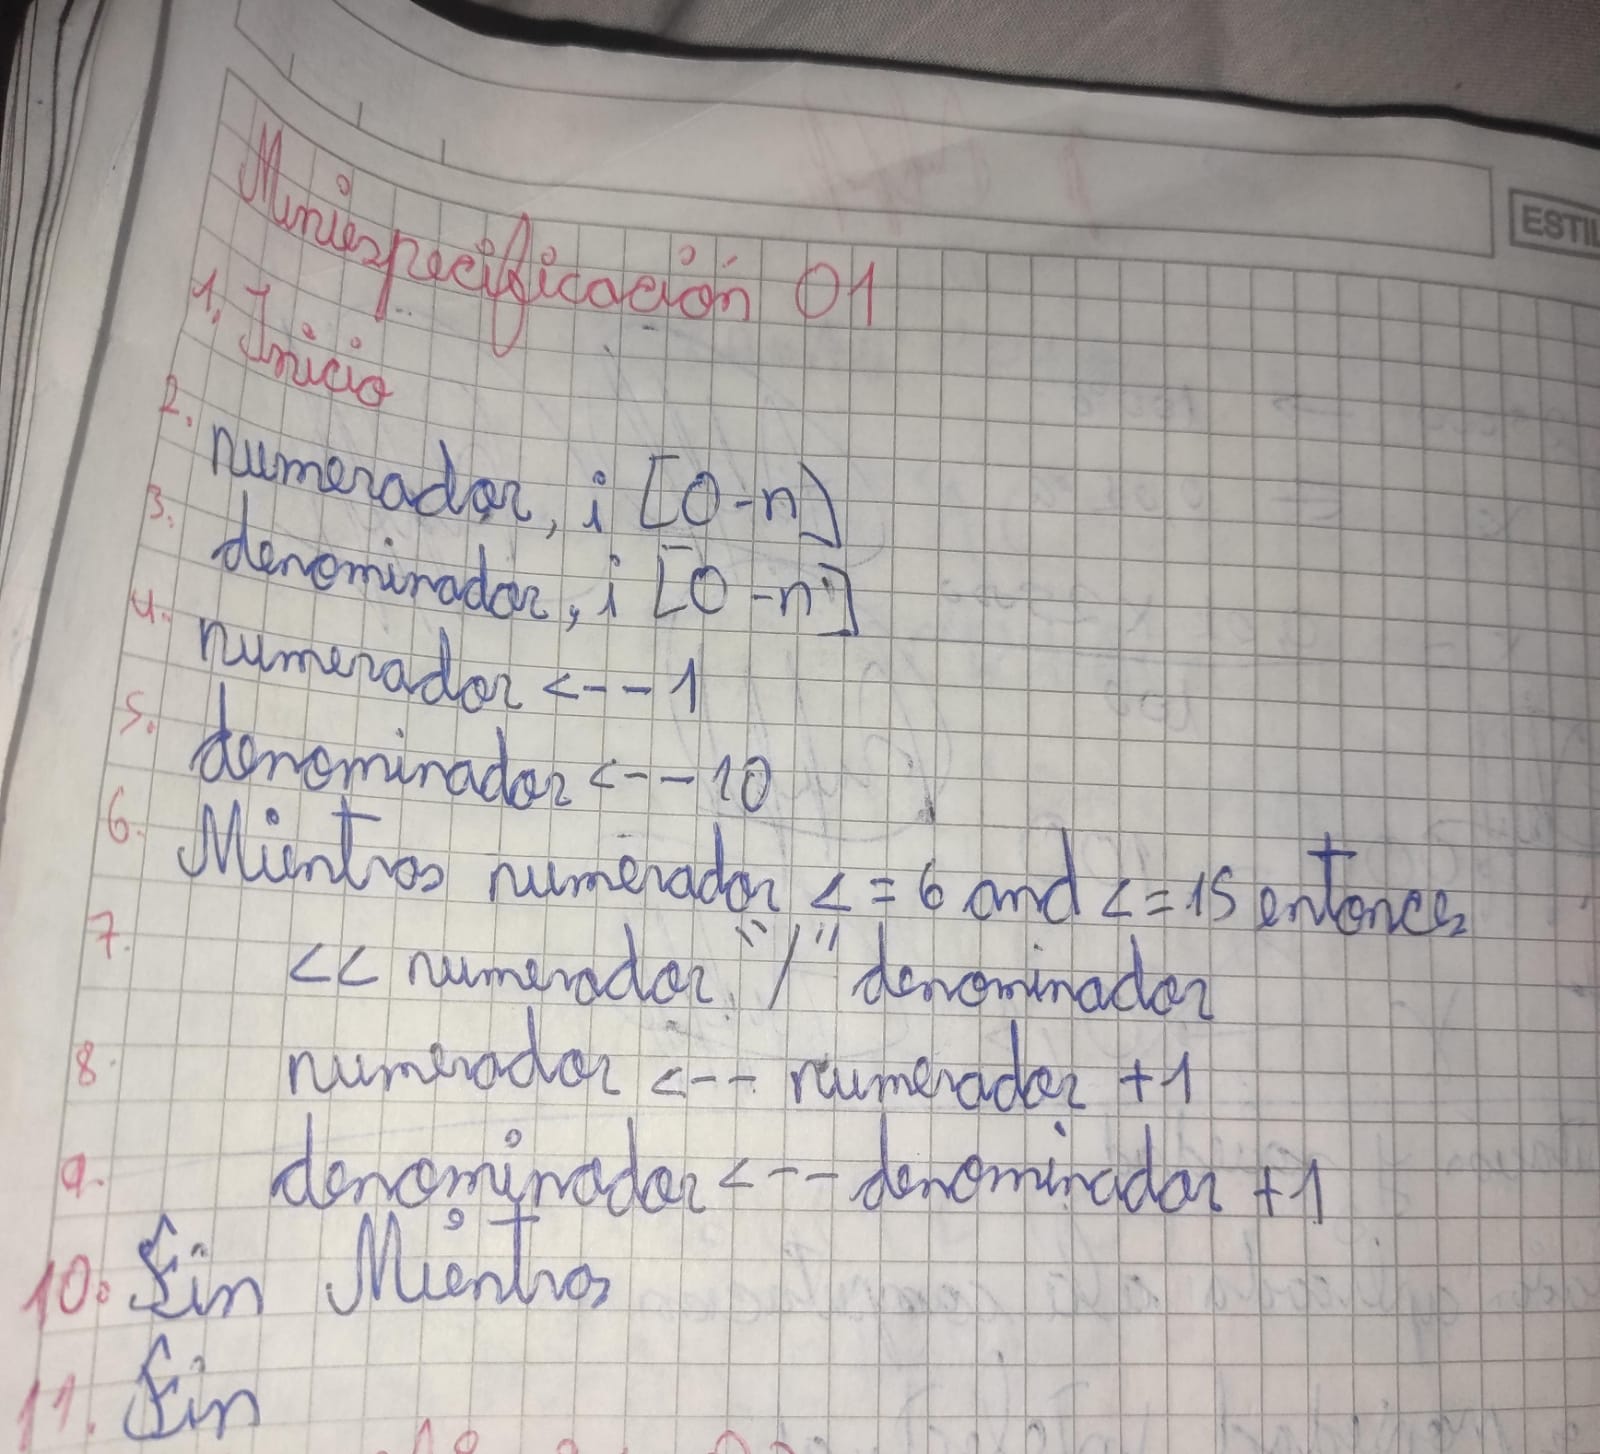 ESTIL
Miniespecificación 01
1. Inicio
2. numerador, i [0-n]
3. denominador, i [0-n]
4. numerador <-- 1
5. denominador <-- 10
6. Mientras numerador <= 6 and <= 15 entonces
7. << numerador, "/" denominador
8. numerador <-- numerador +1
9. denominador <-- denominador +1
10. Fin Mientras
11. Fin